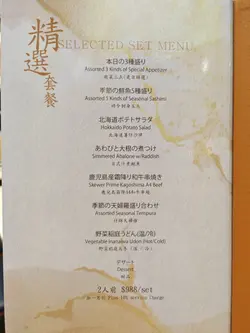 精選套餐
SELECTED SET MENU
本日の3種盛り
Assorted 3 Kinds of Special Appetizer
季節の鮮魚5種盛り
Assorted 5 Kinds of Seasonal Sashimi
北海道ポテトサラダ
Hokkaido Potato Salad
北海道薯仔沙律
あわびと大根の煮つけ
Simmered Abalone w Raddish
鹿児島産霜降り和牛串焼き
Skewer Prime Kagoshima A4 Beef
季節の天婦羅盛り合わせ
Assorted Seasonal Tempura
野菜稲庭うどん(温/冷)
Vegetable Inaniwa Udon (Hot/Cold)
デザート
Dessert
甜品
2人前 $988/set
Plus 10% service Charge